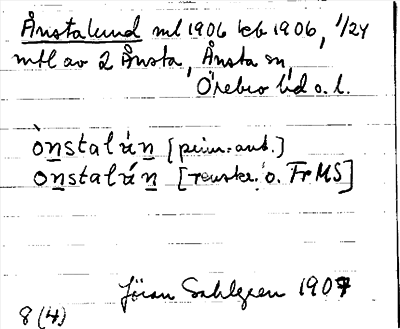 Ånstalund ml 1906 leb 1906, 1/24
mtl av 2 Ånsta, Ånsta sn,
Örebro hd o. l.
ònstalún [prim.-ant.]
onstalún [renskr. o. FrMS]
Jöran Sahlgren 1907
8 (4)